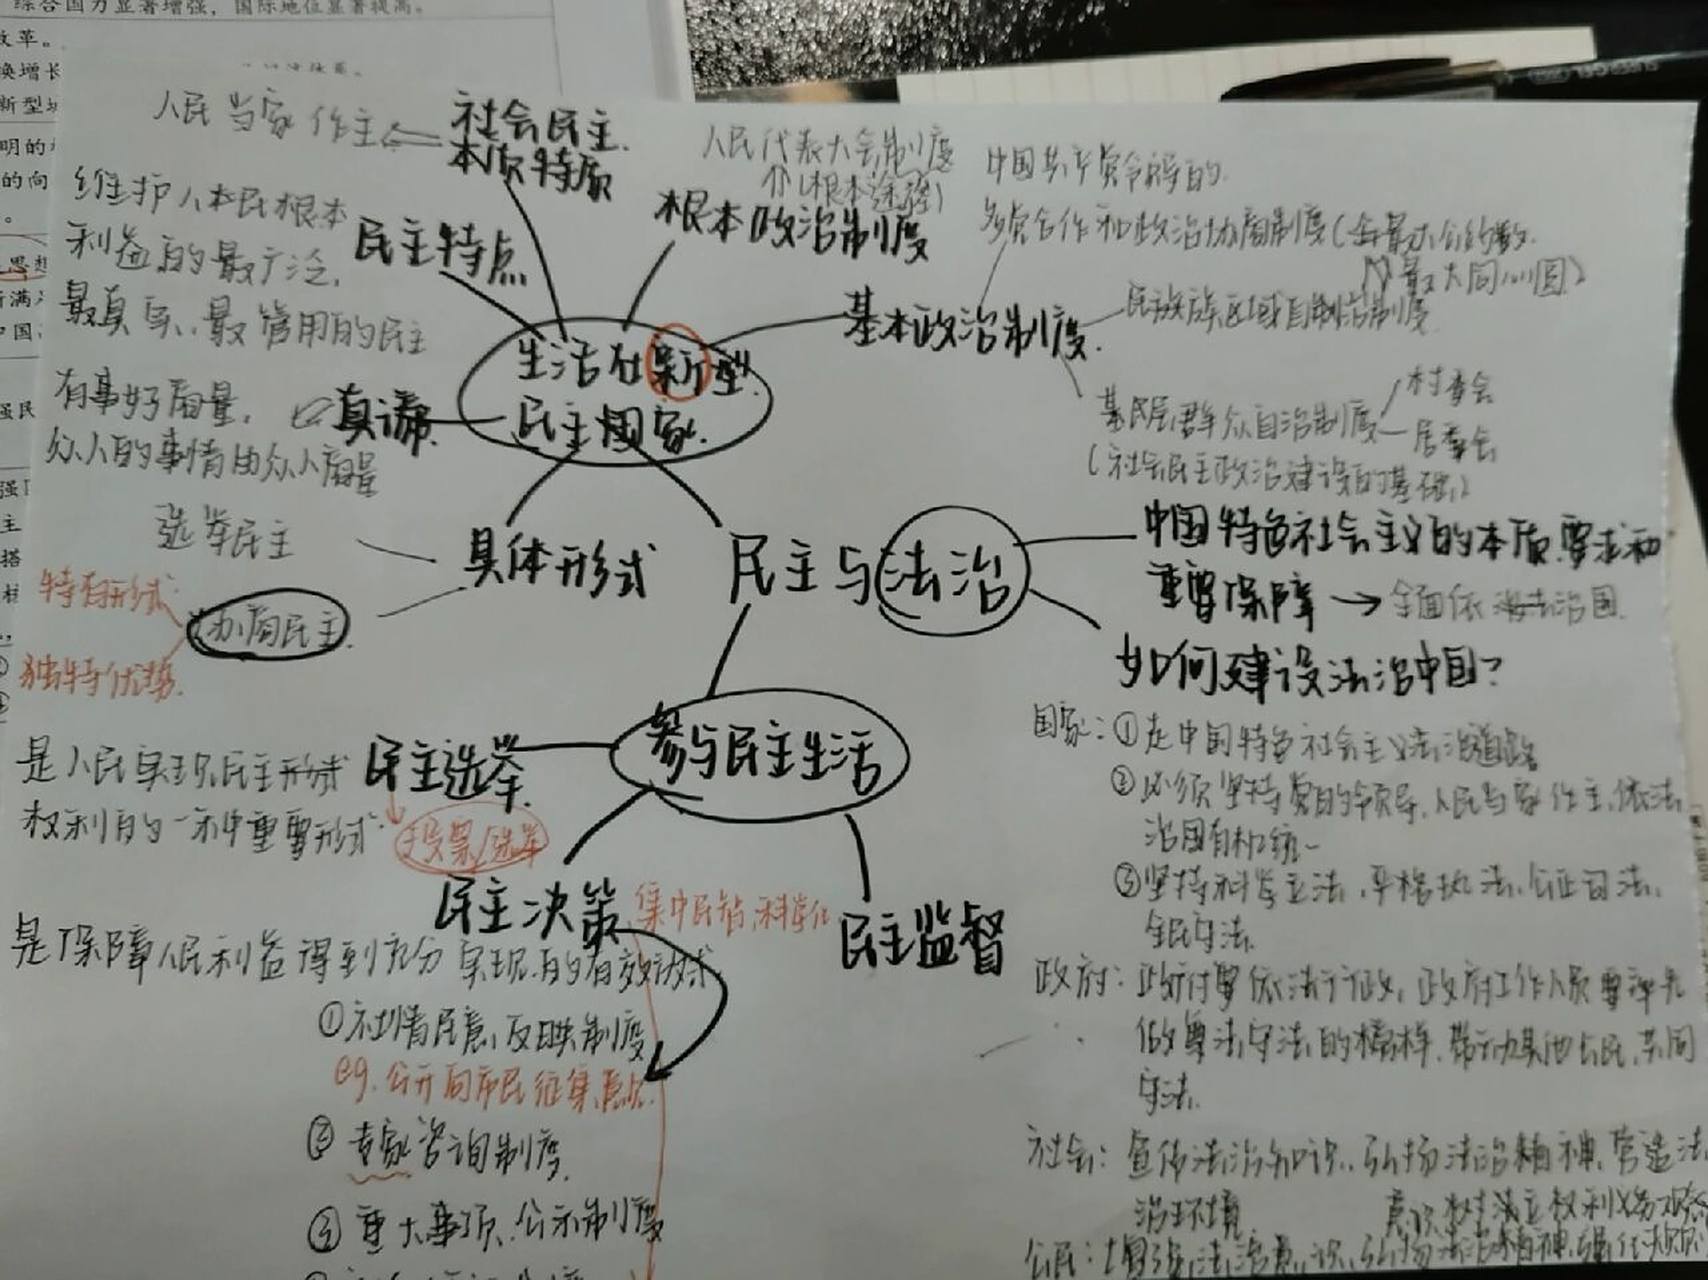 综合国力显著增强，国际地位显著提高。
改革。
人民当家作主
社会民主
本质特质
维护人民根本
利益的最广泛,
最真实、最管用的民主
民主特点
人民代表大会制度
(根本途径)
根本政治制度
中国共产党领导的
多党合作和政治协商制度(全最大公约数
最大同心圆)
基本政治制度
民族区域自治制度
基层群众自治制度
村委会
居委会
(社会民主政治建设的基础)
生活在新型
民主国家
有事好商量,
众人的事情由众人商量
真谛
选举民主
具体形式
特有形式
协商民主
独特优势
民主与法治
中国特色社会主义的本质要求和
重要保障→全面依法治国
如何建设法治中国?
国家:①走中国特色社会主义法治道路
②必须坚持党的领导、人民当家作主、依法
治国有机统一
③坚持科学立法、严格执法、公正司法、
全民守法
政府: 政府要依法行政, 政府工作人员要率先
做尊法守法的榜样, 带动其他公民, 共同
守法
社会: 宣传法治知识、弘扬法治精神、营造法
治环境
公民: 增强法治意识、弘扬法治精神、强化
参与民主生活
民主选举
是人民实现民主形式
权利的一种重要形式
投票/选举
民主决策
集中民智、科学化
民主监督
是保障人民利益得到充分实现的有效方式
①社情民意反映制度
eg.公开向市民征集意见
②专家咨询制度
③重大事项公示制度